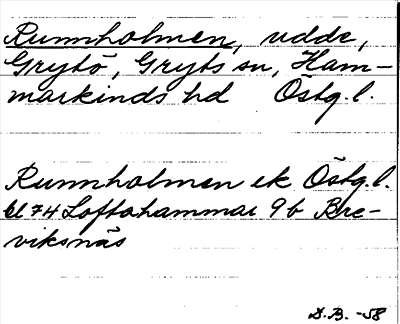 Runnholmen, udde,
Grytö, Gryts sn, Ham-
markinds hd Östg. l.
Runnholmen ek Östg. l.
bl 74 Loftahammar 9b Bre-
viksnäs
D.B. -58